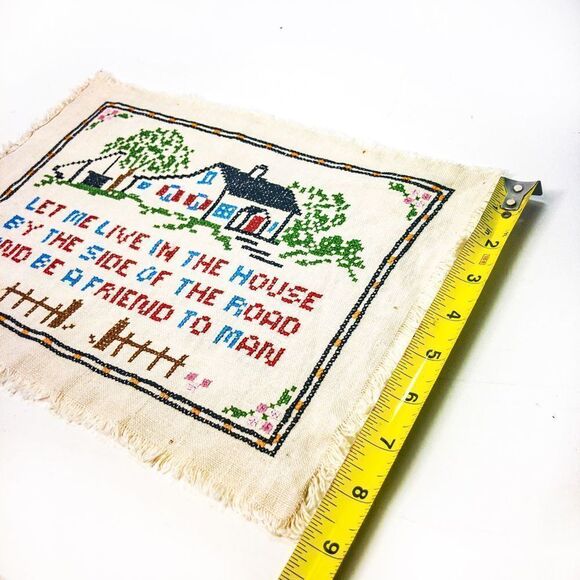 LET ME LIVE IN THE HOUSE
BY THE SIDE OF THE ROAD
AND BE A FRIEND TO MAN
2
3
4
5
6
7
8
9